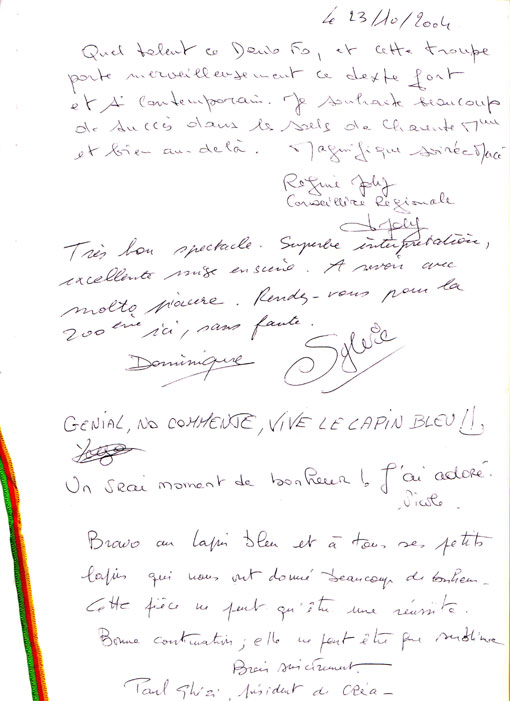 le 23/10/2004
Quel talent ce Dario Fo, et cette troupe
porte merveilleusement ce texte fort
et si contemporain. Je souhaite beaucoup
de succès dans les salles de Charente Mme
et bien au-delà. Magnifique soirée Merci
Régine Joly
Conseillère Régionale
Joly
Très bon spectacle. Superbe interprétation,
excellente mise en scène. A revoir avec
molto piacere. Rendez-vous pour la
200ème ici, sans faute.
Dominique Sylvie
GENIAL, NO COMMENTE, VIVE LE LAPIN BLEU !!
Un vrai moment de bonheur ! J'ai adoré.
Nicole
Bravo au lapin bleu et à tous ses petits
lapins qui nous ont donné beaucoup de bonheur.
Cette pièce ne peut qu'être une réussite.
Bonne continuation ; elle ne peut être que sublime
sincèrement
Paul président de Créa